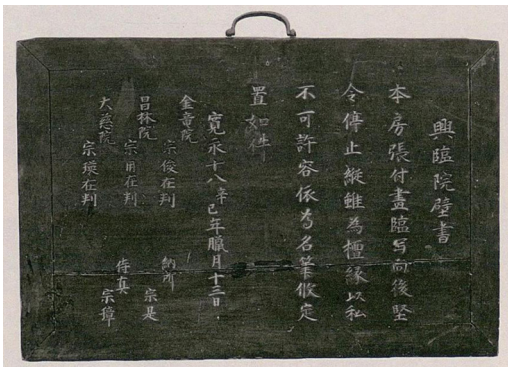 興臨院壁書
本房張付畫臨写向後堅
令停止縦雖為檀縁以私
不可許容依為名筆俲定
置如件
寛永十八辛巳年臘月十三日
金竜院
宗俊在判
昌林院
宗用在判
大慈院
宗環在判
納所
宗是
侍真
宗璋